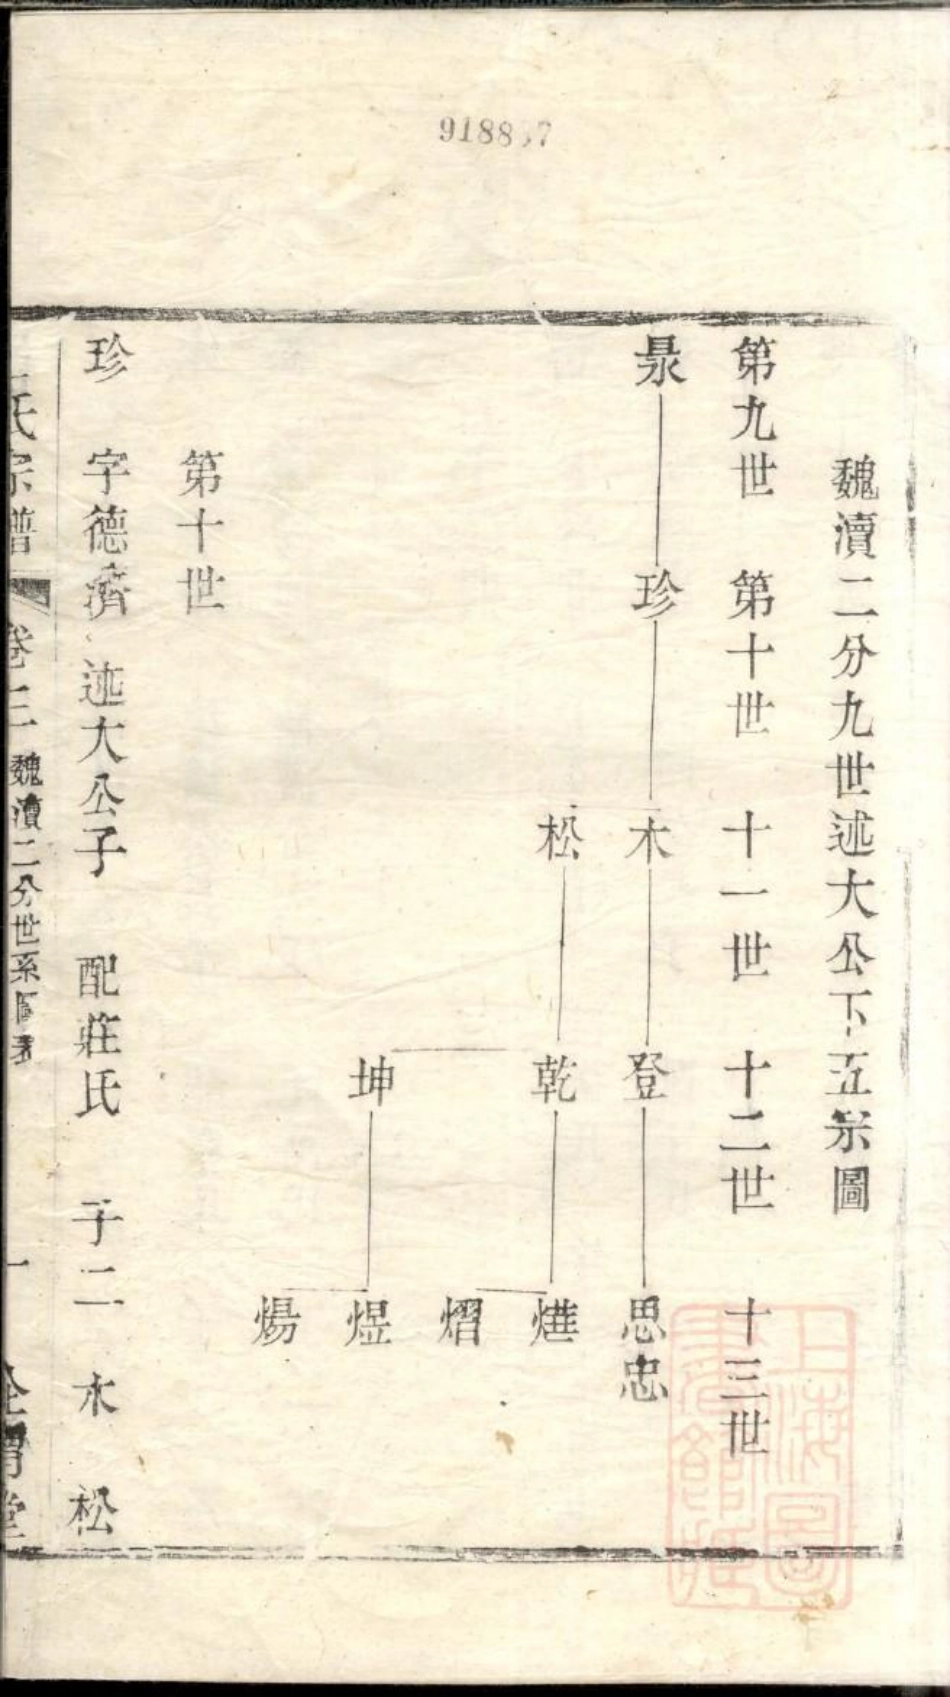 918857
魏瀆二分九世述大公下五宗圖
第九世 第十世 十一世 十二世 十三世
晸 珍 木 登 思忠
松 乾 燁
熠
坤 煜
煬
第十世
珍 字德濟 述大公子 配莊氏 子二 木 松
氏宗譜 卷三 魏瀆二分世系圖表 一
上海圖書館藏